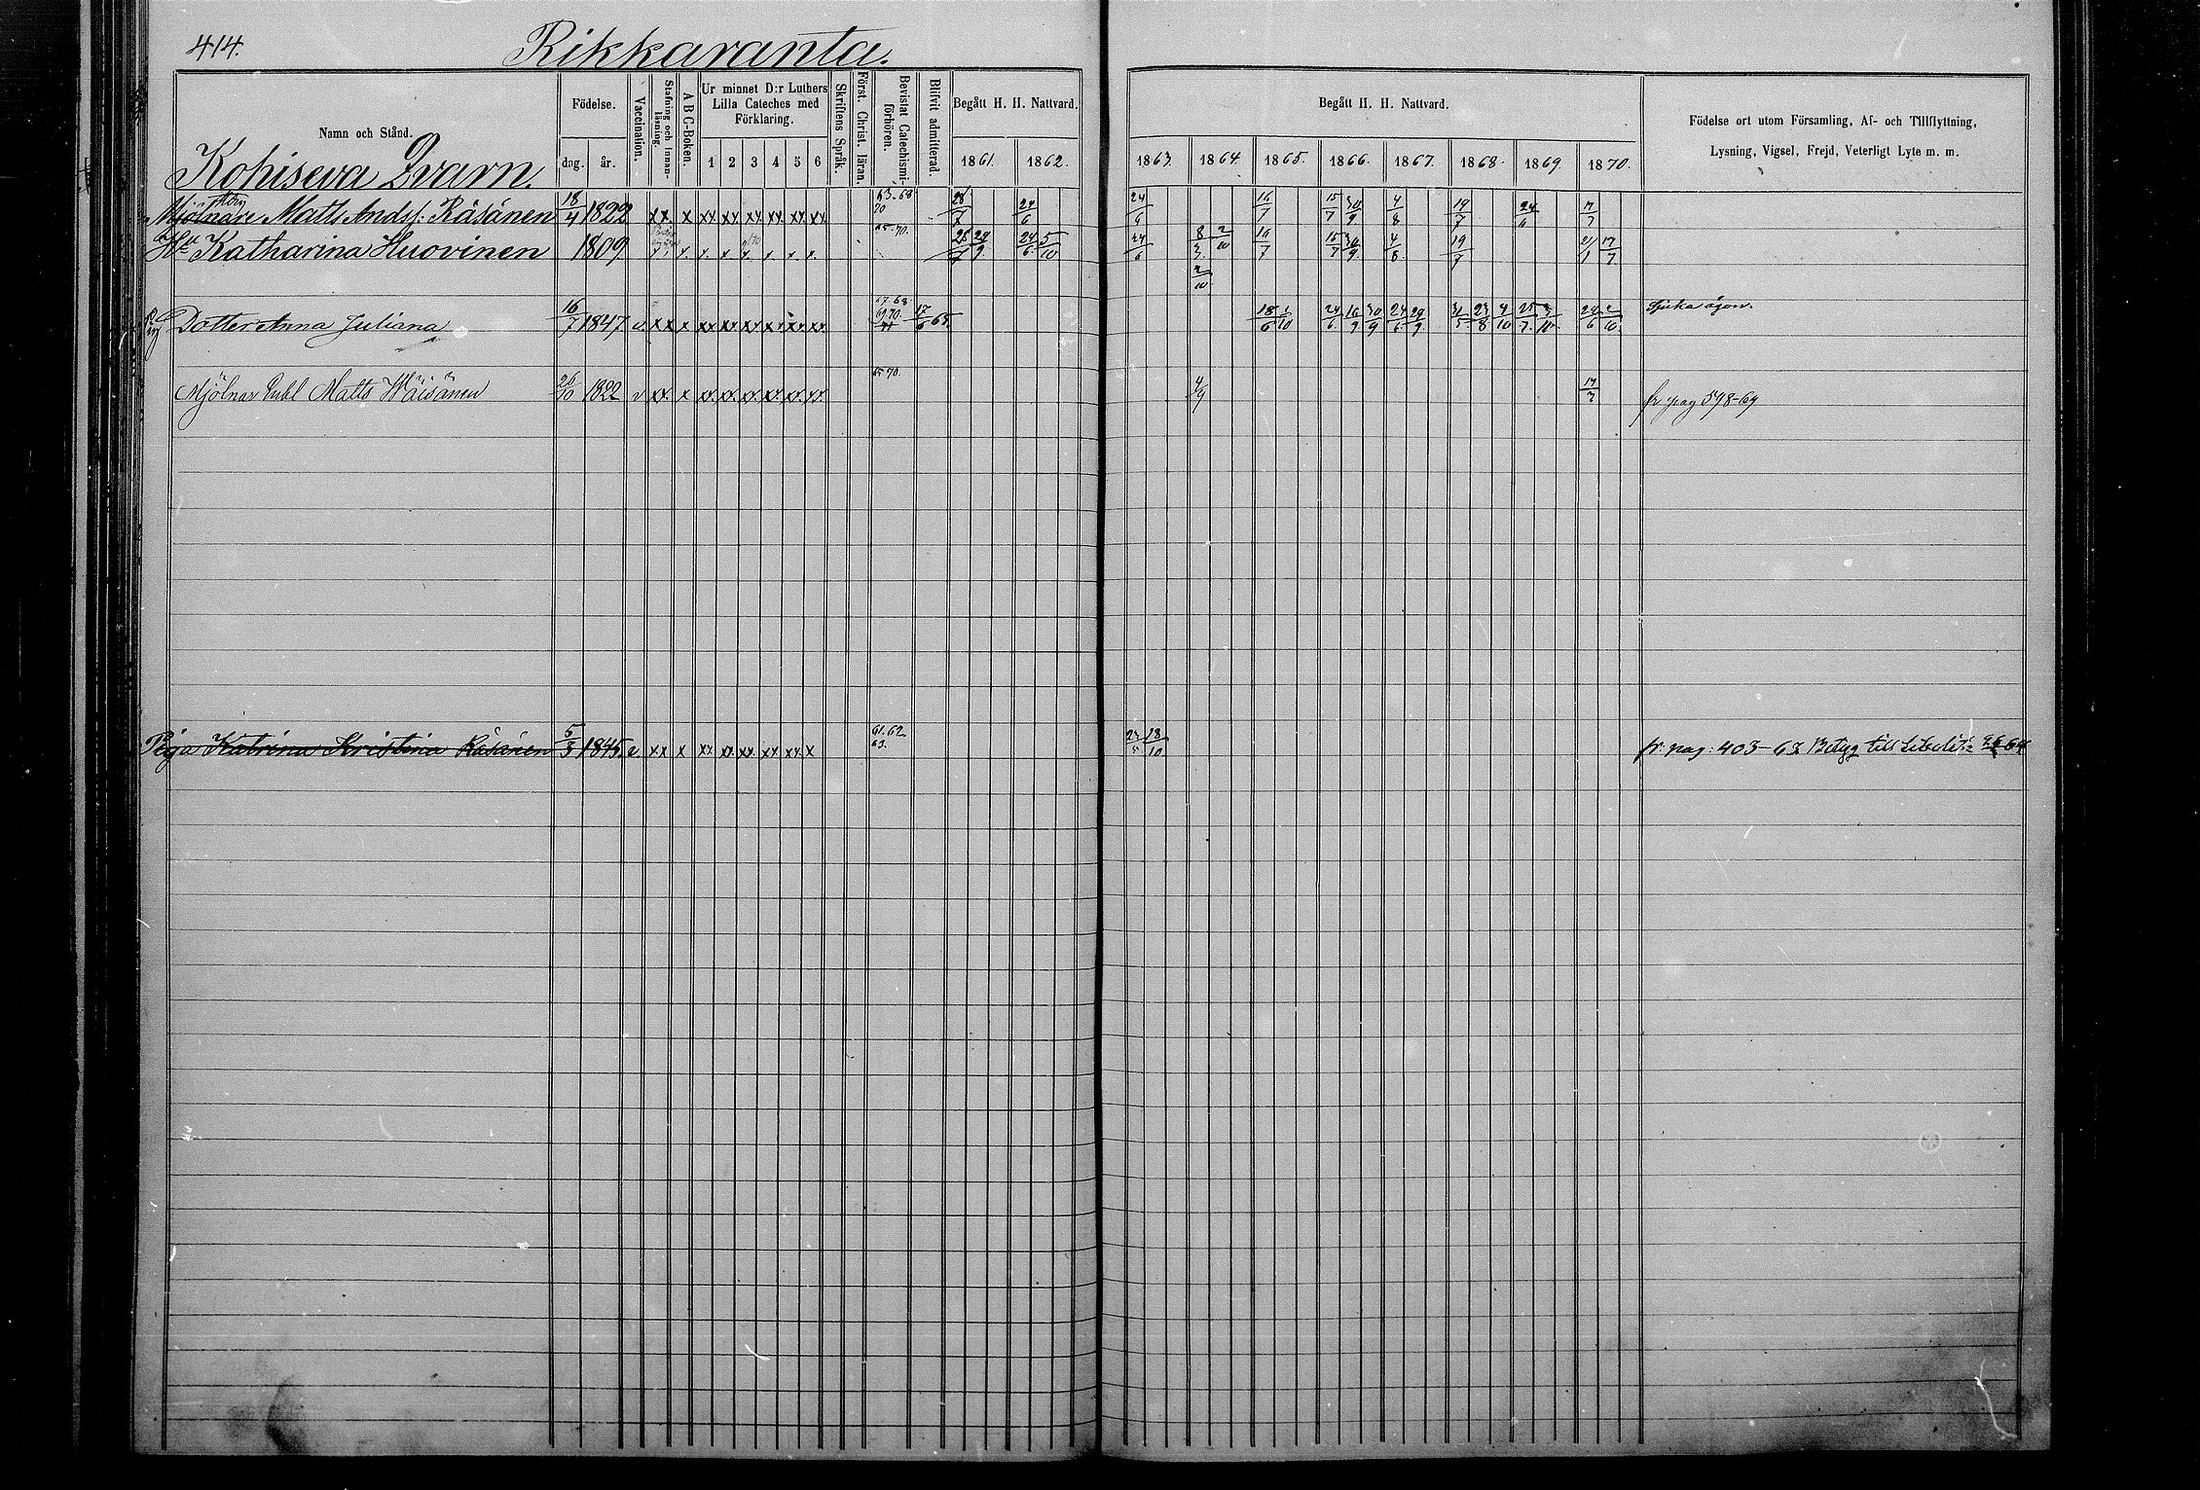 414.
Rikkaranta.
Namn och Stånd.
Födelse.
dag. år.
Vaccination.
Stafning och Innan-läsning.
A B C-Boken.
Ur minnet D:r Luthers Lilla Cateches med Förklaring.
1 2 3 4 5 6
Skriftens Språk.
Först. Christ. läran.
Bevistat Catechismi-förhören.
Blifvit admitterad.
Begått H. H. Nattvard.
1861. 1862.
Begått H. H. Nattvard.
1863. 1864. 1865. 1866. 1867. 1868. 1869. 1870.
Födelse ort utom Församling, Af- och Tillflyttning,
Lysning, Vigsel, Frejd, Veterligt Lyte m. m.
Kohiseva Qvarn.
Mjölnare Matts Andsf. Räsänen 18/4 1822 xx x xx xx xx xx xx xx 63-68 70 28/7 24/6 24/6 16/7 15/7 30/9 4/8 19/7 24/6 17/7
Hu Katharina Huovinen 1809 65-70. 24/6 5/10 24/6 2/10 16/7 15/7 30/9 4/8 19/7 17/7
2/10
Dotter Anna Juliana 16/7 1847 v xx x xx xx xx xx xx xx 67-68 69.70 17/6 65 18/6 1/10 24/6 16/9 30/9 24/6 29/9 31/5 23/8 4/10 25/7 3/10 24/6 2/10 Sjuka ögon.
Mjölnar Matts Wäisänen 26/10 1822 v xx x xx xx xx xx xx xx 65 70 4/9 17/7 fr pag 598-69
Piga Katrina Kristina Räsänen 5/3 1845. v. xx x xx xx xx xx xx x 61.62 63. 18/10 fr. pag: 403-63 Betyg till Libelits 64